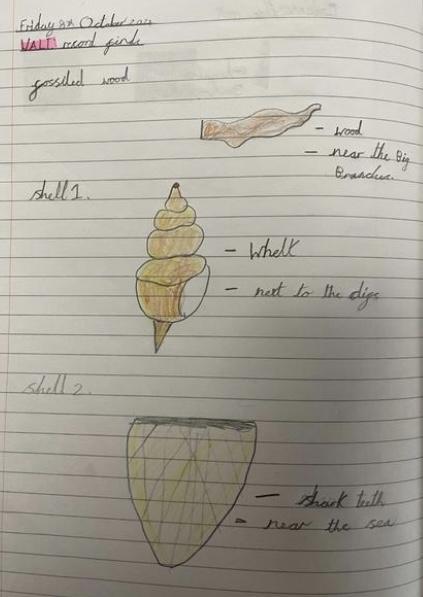 Friday October
WALT record finds
fossiled wood
- wood
- near the Big
Branches.
shell 1.
- Whelk
- next to the digs
shell 2.
- shark teeth
- near the sea